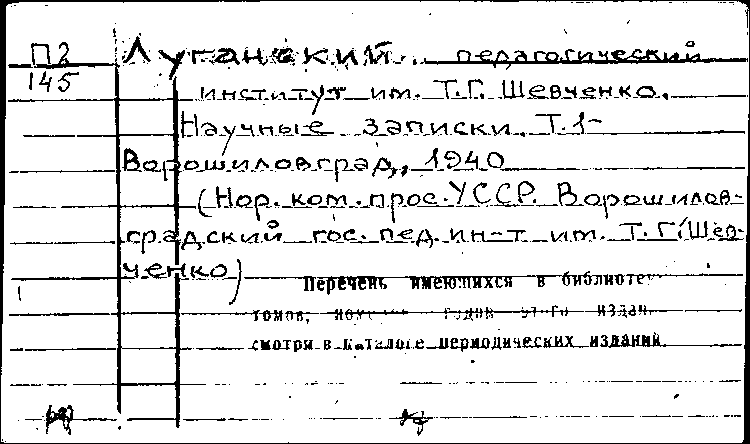 П2
145
Луганский педагогический
институт им. Т.Г. Шевченко.
Научные записки. Т.1-
Ворошиловград, 1940
(Нор. ком. прос. УССР. Ворошилов-
градский гос. пед. ин-т им. Т.Г. Шев-
ченко)
Перечень имеющихся в библиоте
томов, годов этого издан
смотри в каталоге периодических изданий.